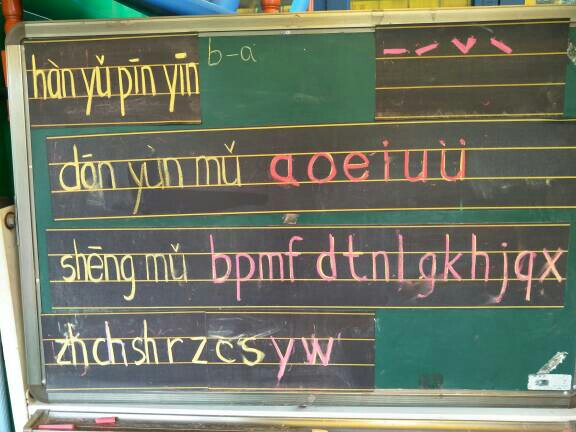 hàn yǔ pīn yīn
b-a
ˉ ˊ ˇ ˋ
dān yùn mǔ a o e i u ü
shēng mǔ b p m f d t n l g k h j q x
zh ch sh r z c s y w